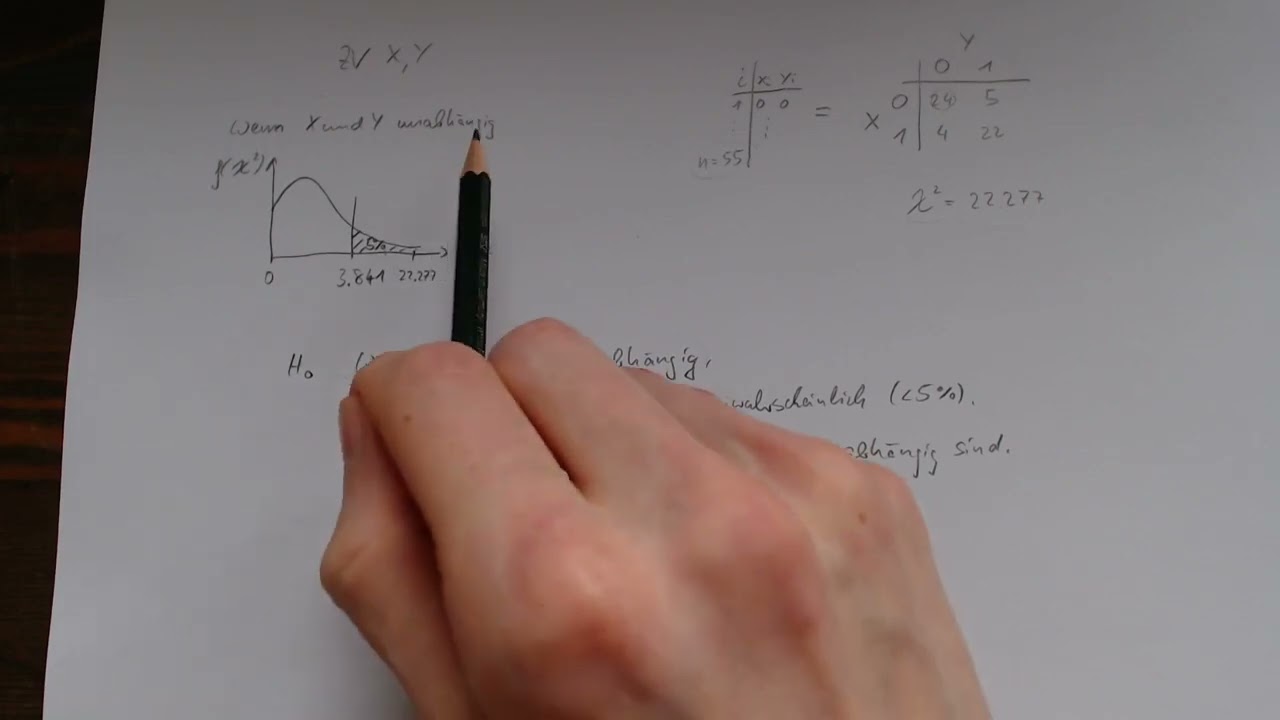 ZV X, Y
Wenn X und Y unabhängig
f(χ²)
5%
0 3.841 22.277
i xi yi
1 0 0
⋮ ⋮
n=55
=
Y
0 1
X 0 24 5
1 4 22
χ² = 22 277
H₀ hängig,
wahrscheinlich (<5%).
hängig sind.